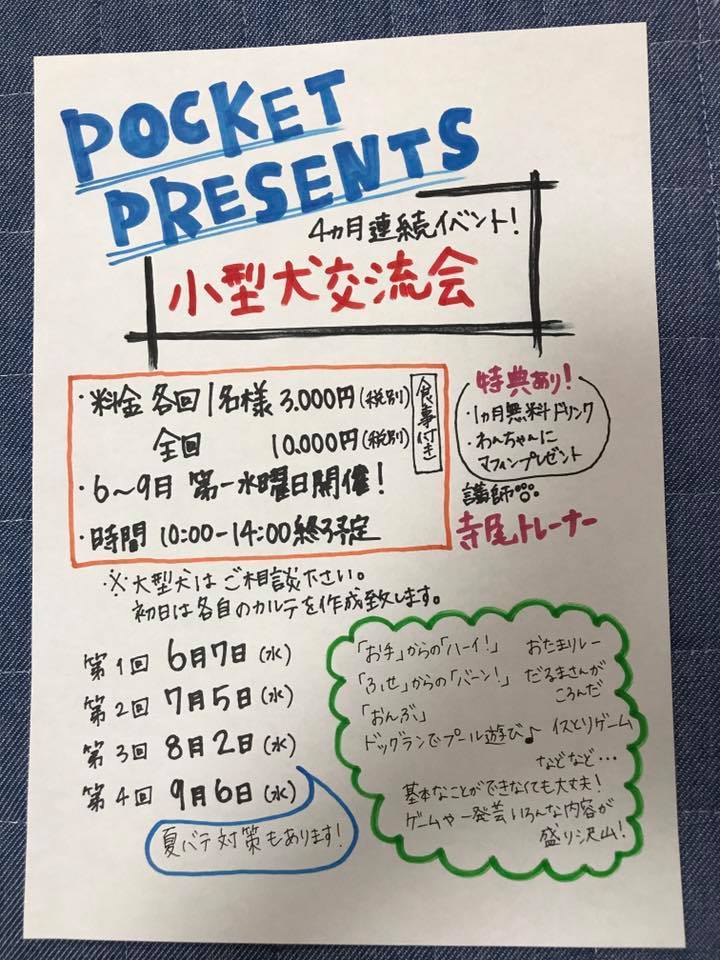 POCKET
PRESENTS
4ヵ月連続イベント!
小型犬交流会
・料金 各回1名様 3.000円(税別)
全回 10.000円(税別)
食事付き
・6〜9月 第一水曜日開催!
・時間 10:00-14:00終了予定
特典あり!
・1ヵ月無料ドリンク
・わんちゃんに
マフィンプレゼント
講師
寺尾トレーナー
※大型犬はご相談下さい。
初日は各自のカルテを作成致します。
第1回 6月7日(水)
第2回 7月5日(水)
第3回 8月2日(水)
第4回 9月6日(水)
夏バテ対策もあります!
「お手」からの「ハーイ!」 おたまリレー
「ふせ」からの「バーン!」 だるまさんが
ころんだ
「おんぶ」
ドッグランでプール遊び♪ イスとりゲーム
などなど…
基本なことができなくても大丈夫!
ゲームや一発芸いろんな内容が
盛り沢山!